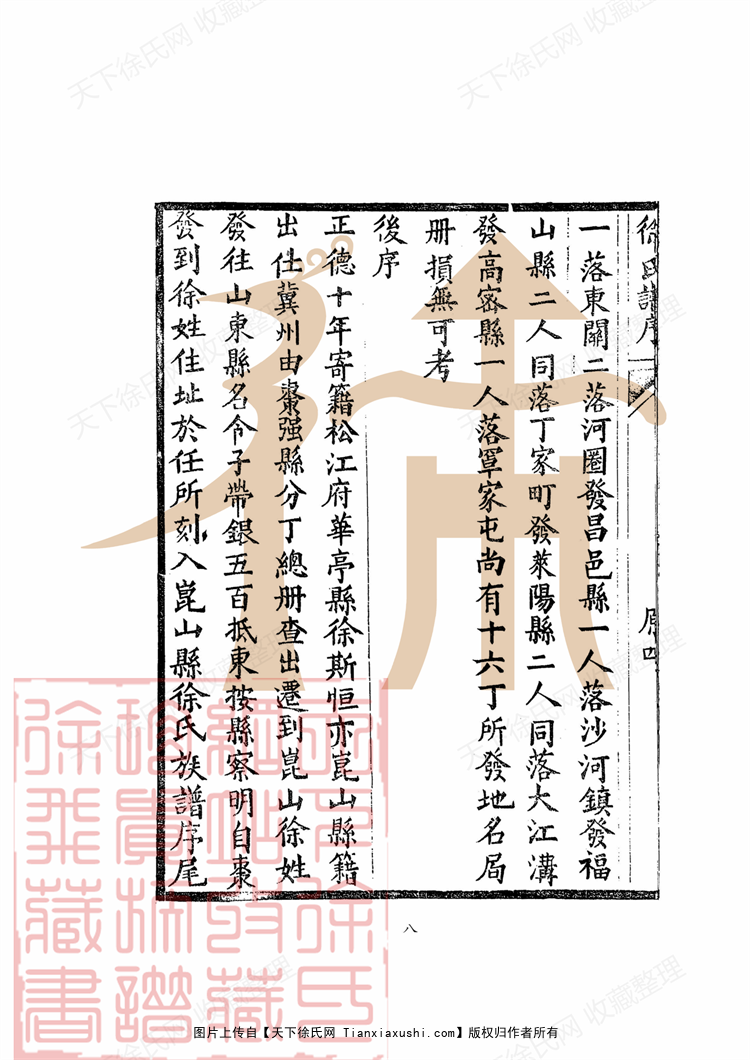 徐氏譜序
原四
一落東關二落河圈發昌邑縣一人落沙河鎮發福
山縣二人同落丁家町發萊陽縣二人同落大江溝
發高密縣一人落單家屯尚有十六丁所發地名局
册損無可考
後序
正德十年寄籍松江府華亭縣徐斯恒亦崑山縣籍
出仕冀州由棗强縣分丁總册查出遷到崑山徐姓
發往山東縣名令子帶銀五百抵東按縣察明自棗
發到徐姓住址於任所刻入崑山縣徐氏族譜序尾
八
天下徐氏网 收藏整理
图片上传自【天下徐氏网 Tianxiaxushi.com】版权归作者所有